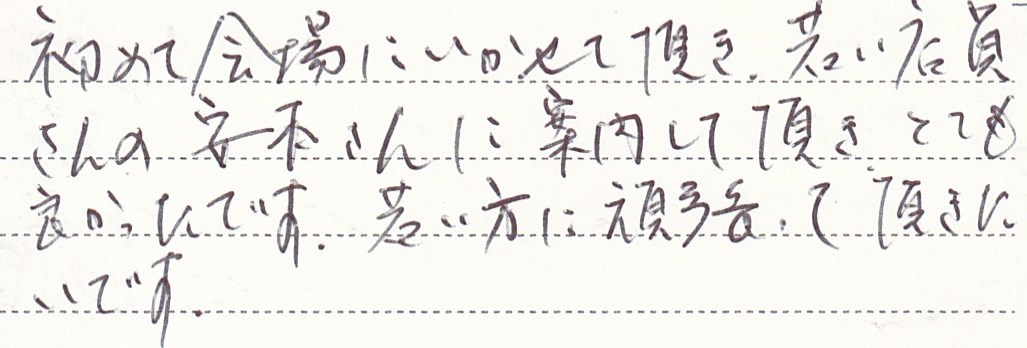 初めて会場にいかせて頂き、若い店員
さんの安本さんに案内して頂き、とても
良かったです。若い方に頑張って頂きた
いです。